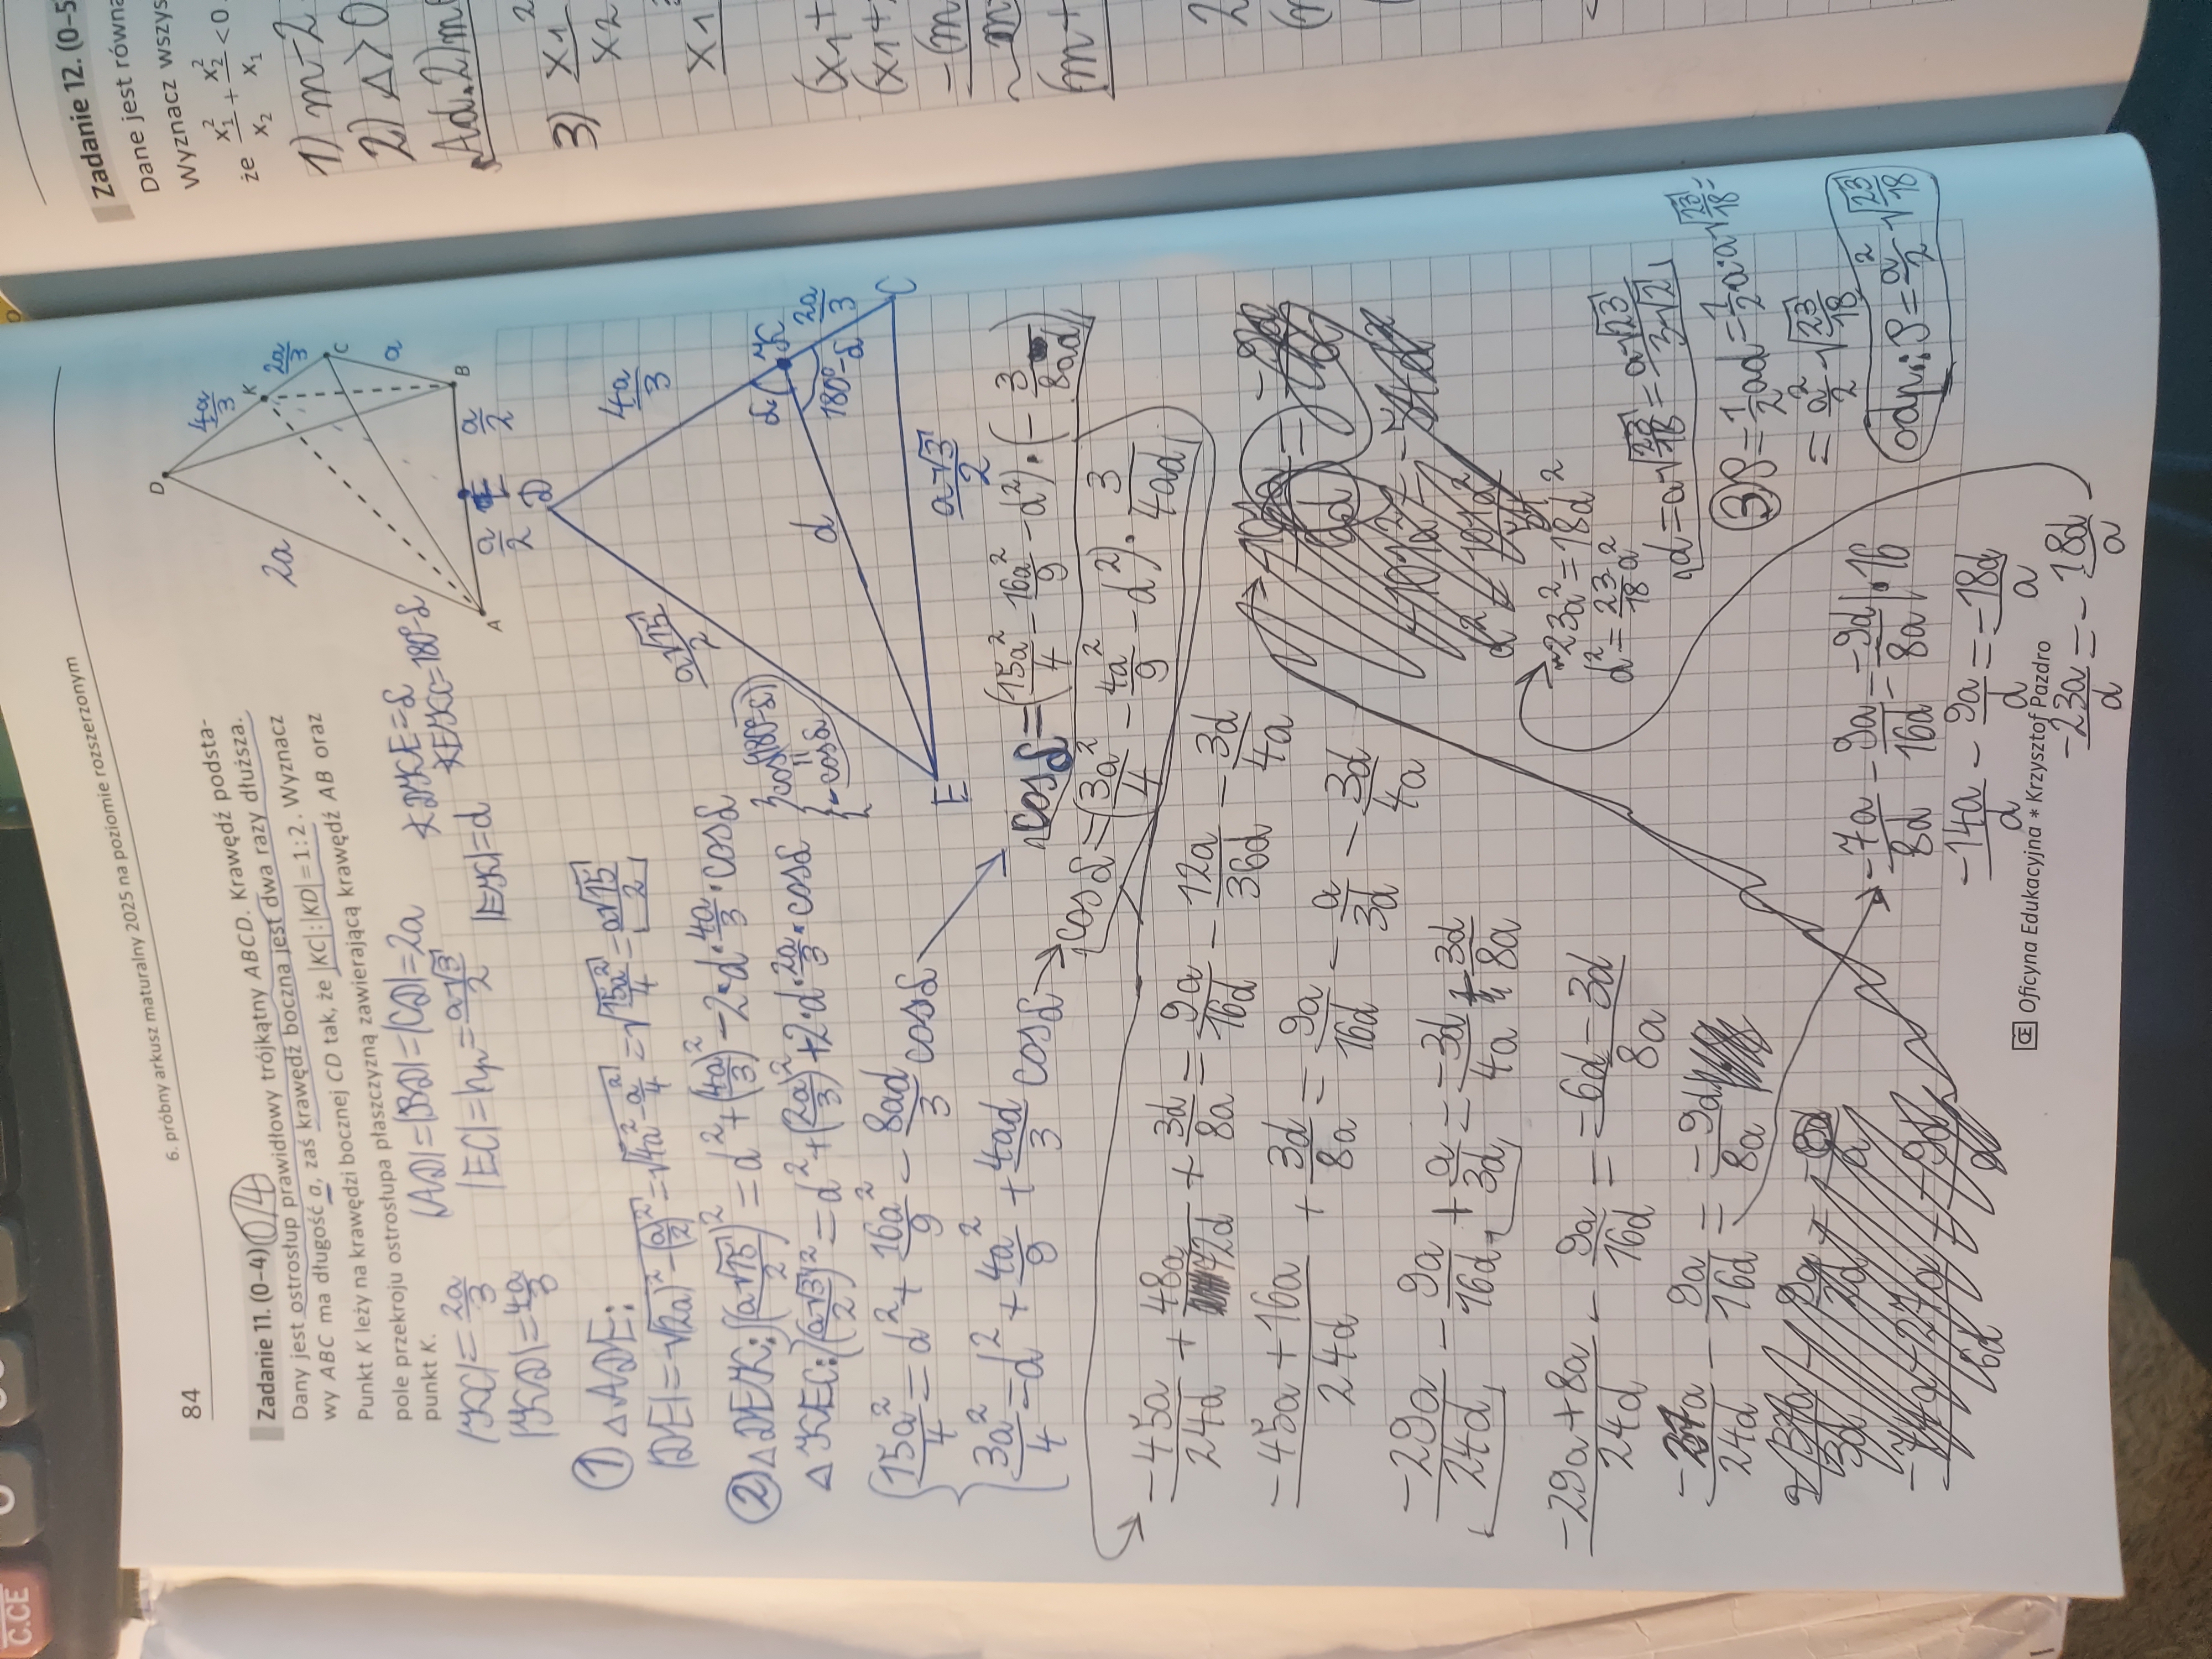 84
6. próbny arkusz maturalny 2025 na poziomie rozszerzonym
Zadanie 11. (0-4) 0/4
Dany jest ostrosłup prawidłowy trójkątny ABCD. Krawędź podsta-
wy ABC ma długość a, zaś krawędź boczna jest dwa razy dłuższa.
Punkt K leży na krawędzi bocznej CD tak, że |KC|:|KD| = 1:2. Wyznacz
pole przekroju ostrosłupa płaszczyzną zawierającą krawędź AB oraz
punkt K.
D
4a/3
K
2a/3
C
a
B
2a
A
a/2
E
a/2
|AD|=|BD|=|CD|=2a
∢DKE=δ
|KC|=2a/3
|EC|=hp=a√3/2
∢EKC=180°-δ
|KD|=4a/3
|EK|=d
① △ADE:
|DE|=√(2a)²-(a/2)²=√4a²-a²/4=√15a²/4=a√15/2
② △DEK: (a√15/2)²=d²+(4a/3)²-2·d·4a/3·cosδ
△KEC: (a√3/2)²=d²+(2a/3)²+2·d·2a/3·cosδ
cos(180°-δ)
=
-cosδ
D
4a/3
a√15/2
d
δ
K
2a/3
180°-δ
C
E
a√3/2
15a²/4=d²+16a²/9-8ad/3 cosδ
3a²/4=d²+4a²/9+4ad/3 cosδ
cosδ=(15a²/4-16a²/9-d²)·(-3/8ad)
cosδ=(3a²/4-4a²/9-d²)·3/4ad
-45a/24d+48a/72d+3d/8a=9a/16d-12a/36d-3d/4a
-45a+16a/24d+3d/8a=9a/16d-a/3d-3d/4a
-29a/24d-9a/16d+a/3d=-3d/4a-3d/8a
-29a+8a/24d-9a/16d=-6d-3d/8a
-9a/16d=-9d/8a
-7a/8d-9a/16d=-9d/8a |·16
-14a/d-9a/d=-18d/a
-23a/d=-18d/a
-23a²=18d²
d²=23/18a²
d=a√23/18=a√23/3√2
③ S=1/2ad=1/2a·a√23/18=
=a²/2·√23/18
odp.: S=a²/2√23/18
Oficyna Edukacyjna * Krzysztof Pazdro
Zadanie 12. (0-5
Dane jest równa
Wyznacz wszys
że x₁²/x₂ + x₂²/x₁ < 0
1) m-2
2) Δ>0
Ad. 2) m
3) x₁²
x₂
x₁
(x₁+
(x₁+
-(m
(m+
2
C.CE